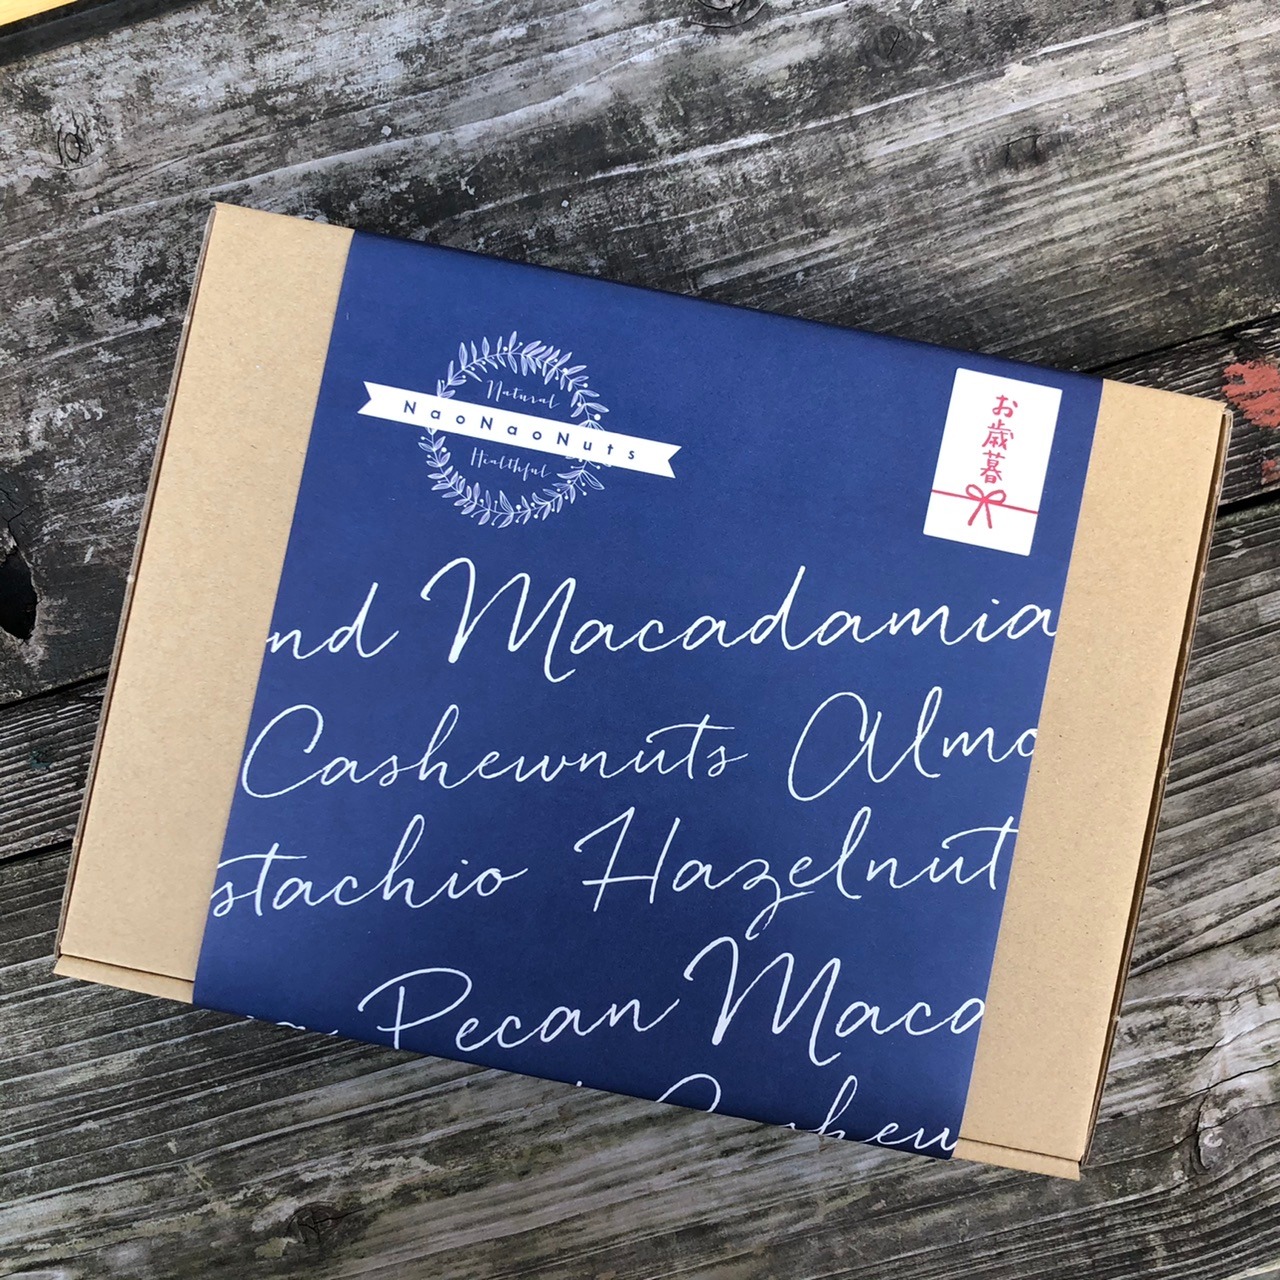 Natural
NaoNaoNuts
Healthful
お歳暮
nd Macadamia
Cashewnuts Almo
stachio Hazelnut
Pecan Maca
Cashew